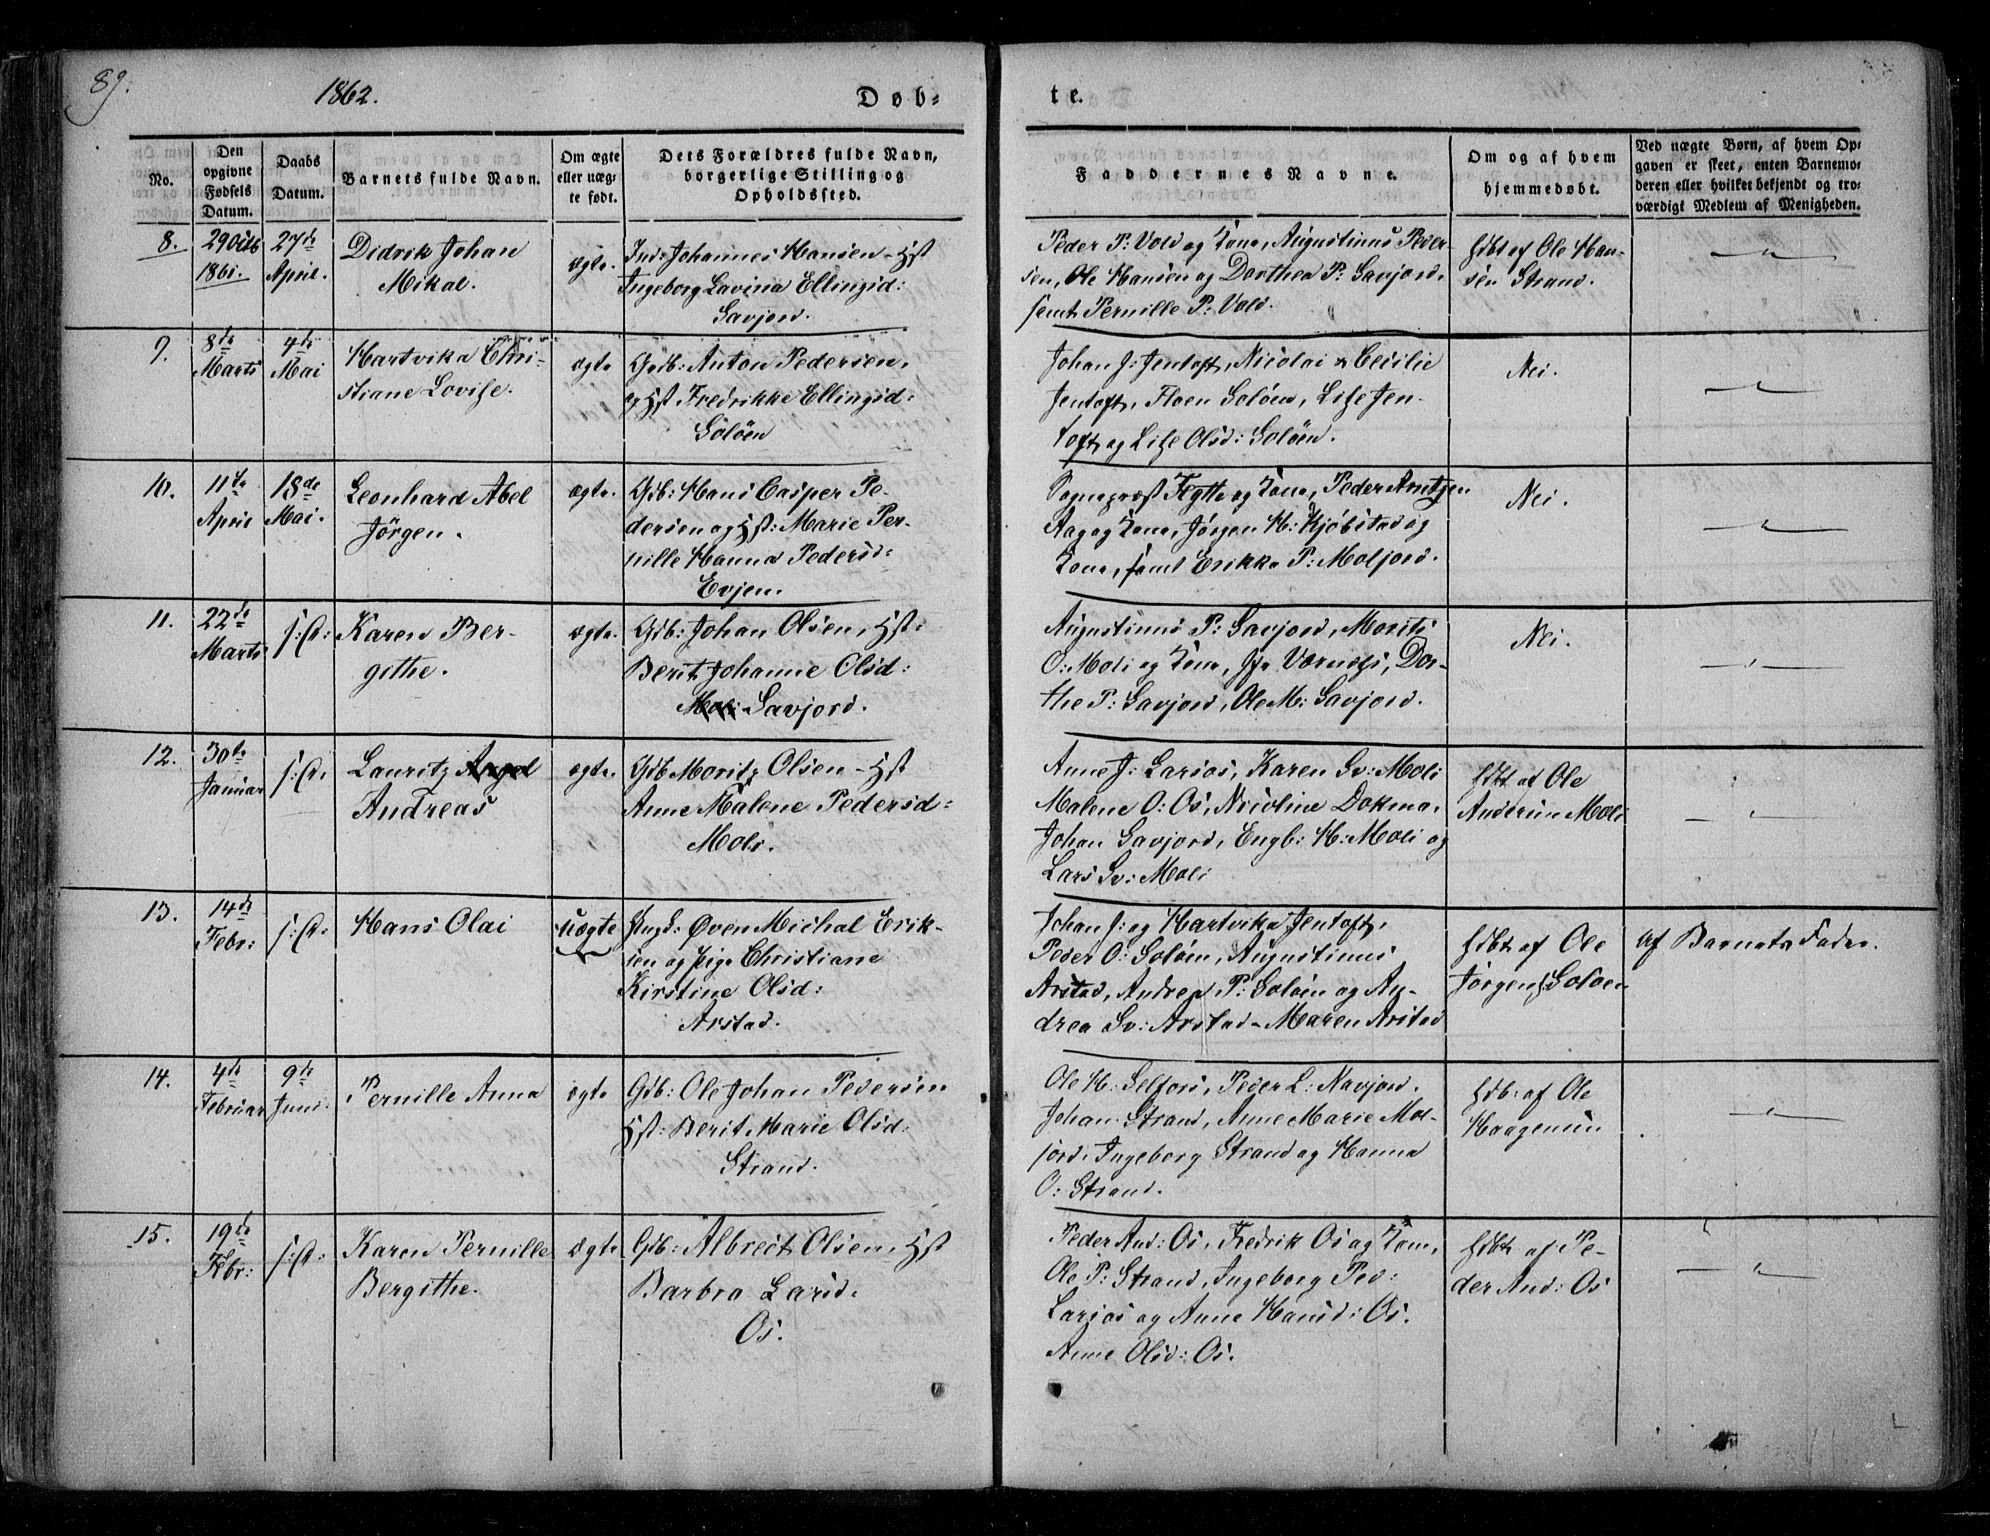 89.
1862.
Døb-
te.
No.
Den opgivne Fødsels Datum.
Daabs Datum.
Barnets fulde Navn.
Om ægte eller uægte født.
Dets Forældres fulde Navn, borgerlige Stilling og Opholdssted.
Faddernes Navne.
Om og af hvem hjemmedøbt.
Ved uægte Børn, af hvem Opgaven er skeet, enten Barnemoderen eller hvilket bekjendt og troværdigt Medlem af Menigheden.
8.
29 Octb
1861.
27de
April.
Didrik Johan
Mikal.
ægte.
Ind: Johannes Hansen - Hst
Ingeborg Lavina Ellingsd:
Savjord.
Peder P: Vold og Kone, Augustinus Peder-
sen, Ole Hansen og Dorthea P: Savjord,
samt Pernille P: Vold.
Hdbt af Ole Han-
sen Strand.
9.
8de
Marts
4de
Mai
Hartvika Chri-
stiane Lovise.
ægte
Gdb: Anton Pedersen,
og Hst Fredrikke Ellingsd:
Soløen
Johan J: Jentoft, Nicolai & Cecilie
Jentoft, Floen Soløen, Lise Jen-
toft og Lise Olsd: Soløen.
Nei.
10.
11te
April
18de
Mai.
Leonhard Abel
Jörgen.
ægte.
Gdb: Hans Casper Pe-
dersen og Hst: Marie Per-
nille Hanna Pedersd:
Evjen.
Sognepræst Flytte og Kone, Peder Arntzen
Aag og Kone, Jørgen H: Kjøbstad og
Kone, samt Erikka P: Moljord.
Nei.
11.
22de
Marts
s: D:
Karen Ber-
githe.
ægte.
Gdb: Johan Olsen, Hst:
Berit Johanne Olsd:
Moli Savjord.
Augustinus P: Savjord, Morits
O: Moli og Kone, Dor-
the P: Savjord, Ole M: Savjord.
Nei.
12.
30te
Januar
s: D:
Lauritz Angel
Andreas
ægte.
Gdb Moritz Olsen - Hst
Anne Malene Pedersd:
Moli.
Anne J: Larsos, Karen Sv: Moli
Malene O: Os, Nicoline Dokmo,
Johan Savjord, Engb: H: Moli og
Lars Sv: Moli
Hdbt af Ole
Andersen Moli
13.
14de
Febr:
s: D:
Hans Olai
uægte
Ungk: Øven Michal Erik-
sen og pige Christiane
Kirstine Olsd:
Arstad.
Johan J: og Hartvika Jentoft,
Peder O: Soløen, Augustinus
Arstad, Andreas P: Soløen og An-
drea Sv: Arstad - Maren Arstad
Hdbt af Ole
Jørgens: Soløen
Af Barnets Fader.
14.
4de
Februar
9de
Juni
Pernille Anna
ægte
Gdb: Ole Johan Pedersen
Hst: Berit Marie Olsd:
Strand.
Ole H: Selfors, Peder L: Navjord,
Johan Strand, Anne Marie Mol-
jord, Ingeborg Strand og Hanna
O: Strand.
Hdb: af Ole
Haagensen
15.
19de
Febr:
s: D:
Karen Pernille
Bergithe.
ægte
Gdb: Albrect Olsen, Hst
Barbro Larsd:
Os.
Peder And: Os, Fredrik Os og Kone,
Ole P: Strand, Ingeborg Ped:
Larsos og Anne Hansd: Os.
Anne Olsd: Os.
Hdbt af Pe-
der And: Os